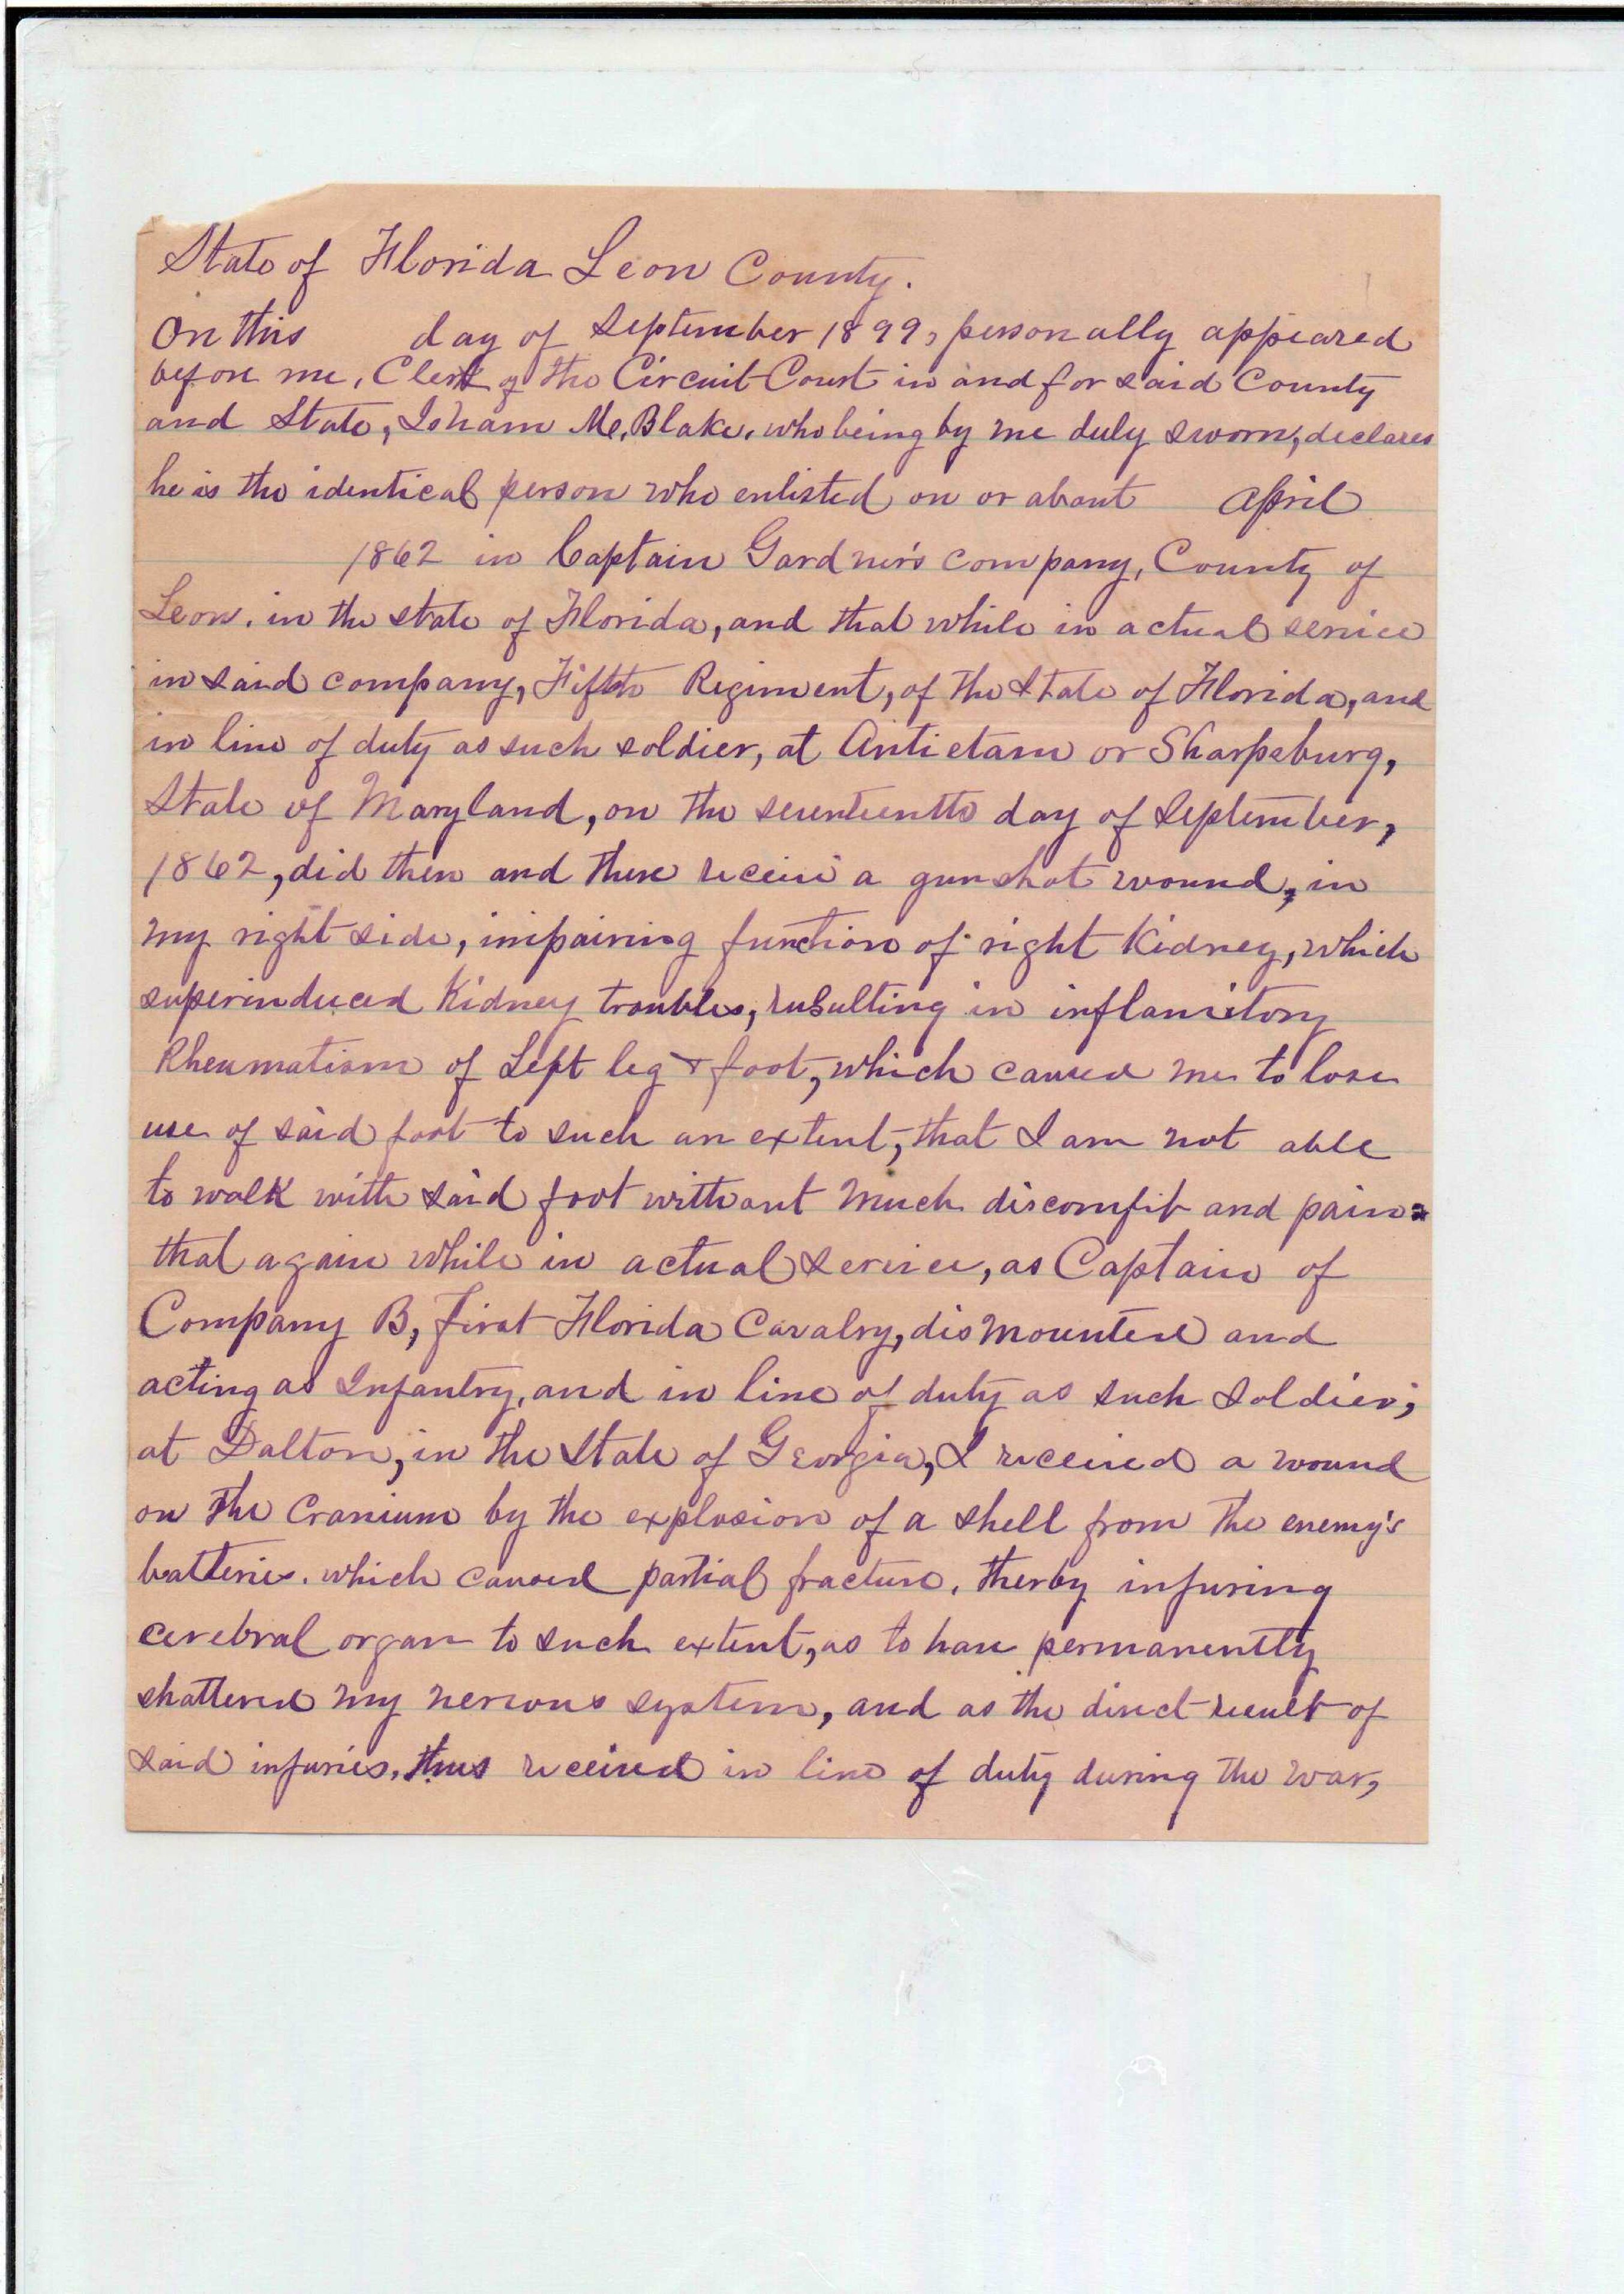 State of Florida Leon County.
On this day of September 1899, personally appeared
before me, Clerk of the Circuit Court in and for said County
and State, Isham M. Blake, who being by me duly sworn, declares
he is the identical person who enlisted on or about April
1862 in Captain Gardner's company, County of
Leon, in the state of Florida, and that while in actual service
in said company, Fifth Regiment, of the State of Florida, and
in line of duty as such soldier, at Antietam or Sharpsburg,
State of Maryland, on the seventeenth day of September,
1862, did then and there receive a gunshot wound, in
my right side, impairing function of right Kidney, which
superinduced Kidney troubles, resulting in inflamitory
Rheumatism of Left leg & foot, which caused me to lose
use of said foot to such an extent, that I am not able
to walk with said foot without much discomfit and pain:
that again while in actual service, as Captain of
Company B, First Florida Cavalry, dismounted and
acting as Infantry, and in line of duty as such soldier;
at Dalton, in the State of Georgia, I received a wound
on the Cranium by the explosion of a shell from the enemy's
batteries, which caused partial fracture, therby injuring
cerebral organ to such extent, as to have permanently
shattered my nervous system, and as the direct result of
said injuries, thus received in line of duty during the war,